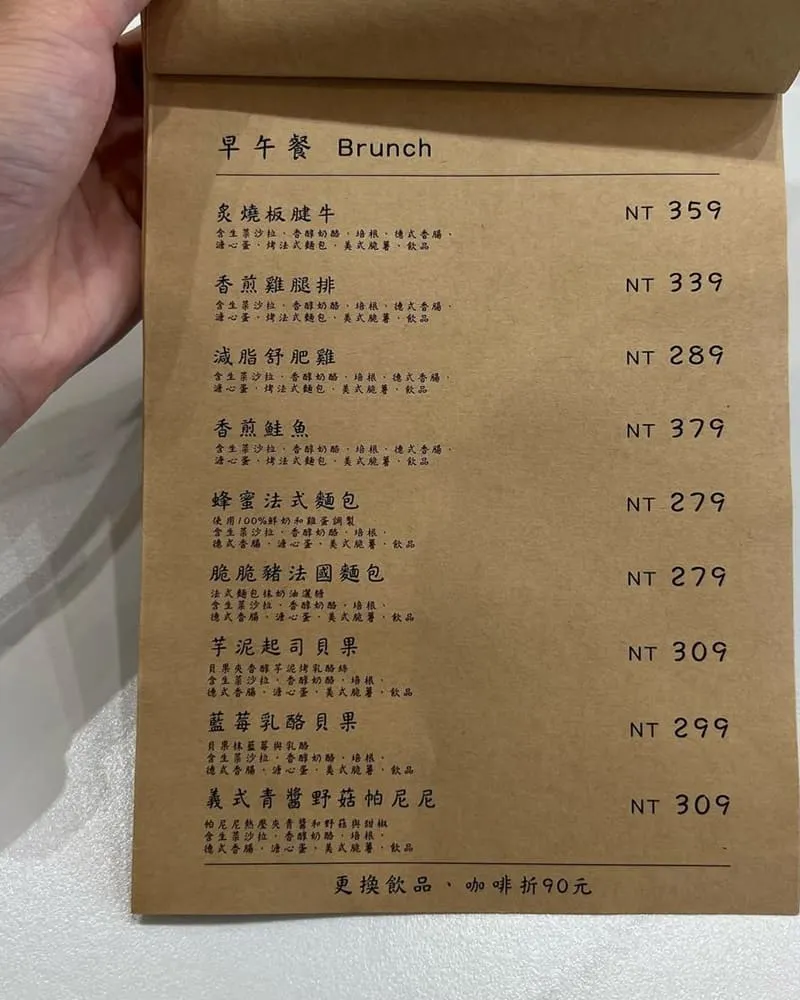 早午餐 Brunch
炙燒板腱牛 NT 359
含生菜沙拉、香醇奶酪、培根、德式香腸、
溏心蛋、烤法式麵包、美式脆薯、飲品
香煎雞腿排 NT 339
含生菜沙拉、香醇奶酪、培根、德式香腸、
溏心蛋、烤法式麵包、美式脆薯、飲品
減脂舒肥雞 NT 289
含生菜沙拉、香醇奶酪、培根、德式香腸、
溏心蛋、烤法式麵包、美式脆薯、飲品
香煎鮭魚 NT 379
含生菜沙拉、香醇奶酪、培根、德式香腸、
溏心蛋、烤法式麵包、美式脆薯、飲品
蜂蜜法式麵包 NT 279
使用100%鮮奶和雞蛋調製
含生菜沙拉、香醇奶酪、培根、
德式香腸、溏心蛋、美式脆薯、飲品
脆脆豬法國麵包 NT 279
法式麵包抹奶油灑糖
含生菜沙拉、香醇奶酪、培根、
德式香腸、溏心蛋、美式脆薯、飲品
芋泥起司貝果 NT 309
貝果夾香醇芋泥烤乳酪絲
含生菜沙拉、香醇奶酪、培根、
德式香腸、溏心蛋、美式脆薯、飲品
藍莓乳酪貝果 NT 299
貝果抹藍莓與乳酪
含生菜沙拉、香醇奶酪、培根、
德式香腸、溏心蛋、美式脆薯、飲品
義式青醬野菇帕尼尼 NT 309
帕尼尼熱壓夾青醬和野菇與甜椒
含生菜沙拉、香醇奶酪、培根、
德式香腸、溏心蛋、美式脆薯、飲品
更換飲品、咖啡折90元